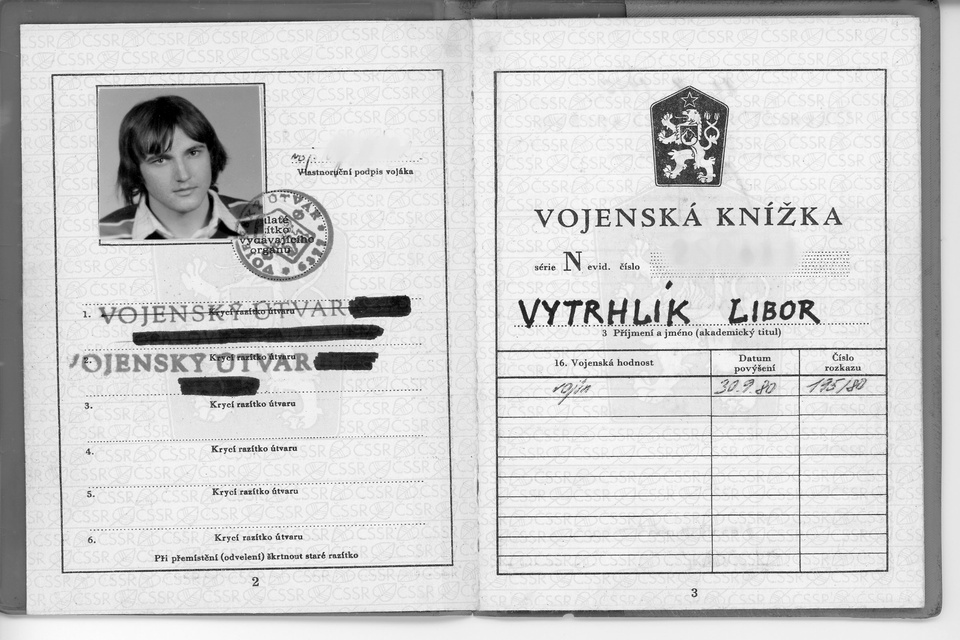 Vlastnoruční podpis vojáka
vydávajícího
orgánu
1. VOJENSKÝ ÚTVAR
Krycí razítko útvaru
2. VOJENSKÝ ÚTVAR
Krycí razítko útvaru
3. Krycí razítko útvaru
4. Krycí razítko útvaru
5. Krycí razítko útvaru
6. Krycí razítko útvaru
Při přemístění (odvelení) škrtnout staré razítko
2
VOJENSKÁ KNÍŽKA
série N evid. číslo
VYTRHLÍK LIBOR
3 Příjmení a jméno (akademický titul)
16. Vojenská hodnost
Datum povýšení
Číslo rozkazu
vojín 30.9.80 195/80
3